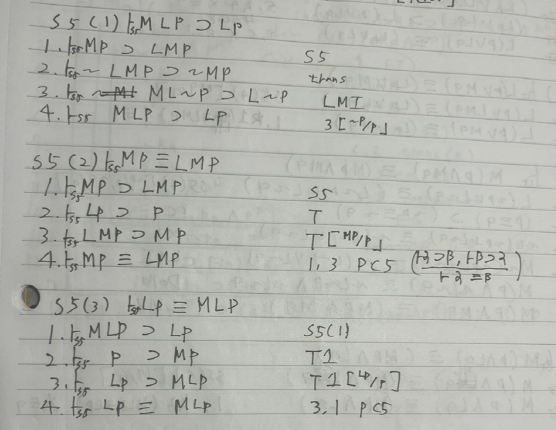 S5(1) ⊢S5 MLP ⊃ LP
1. ⊢S5 MP ⊃ LMP S5
2. ⊢S5 ~LMP ⊃ ~MP trans
3. ⊢S5 ML~P ⊃ L~P LMI
4. ⊢S5 MLP ⊃ LP 3[~P/P]
S5(2) ⊢S5 MP ≡ LMP
1. ⊢S5 MP ⊃ LMP S5
2. ⊢S5 LP ⊃ P T
3. ⊢S5 LMP ⊃ MP T[MP/P]
4. ⊢S5 MP ≡ LMP 1, 3 PC5 (⊢α⊃β, ⊢β⊃α / ⊢α≡β)
S5(3) ⊢S5 LP ≡ MLP
1. ⊢S5 MLP ⊃ LP S5(1)
2. ⊢S5 P ⊃ MP T1
3. ⊢S5 LP ⊃ MLP T1[LP/P]
4. ⊢S5 LP ≡ MLP 3, 1 PC5